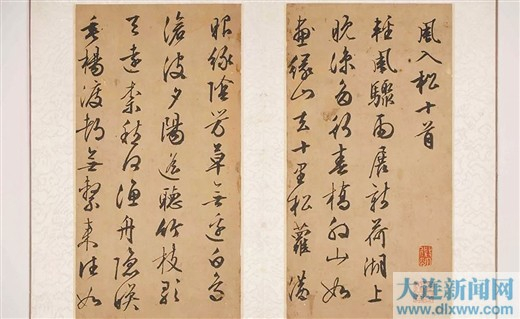 風入松十首
輕風驟雨展新荷湖上
晚涼多行春橋外山如
畫緣山去十里松蘿滿
眼綠陰芳草無邊白鳥
滄波夕陽遙聽竹枝歌
天遠奈愁何漁舟隱映
垂楊渡都無繫來往如
大连新闻网
www.dlxww.com